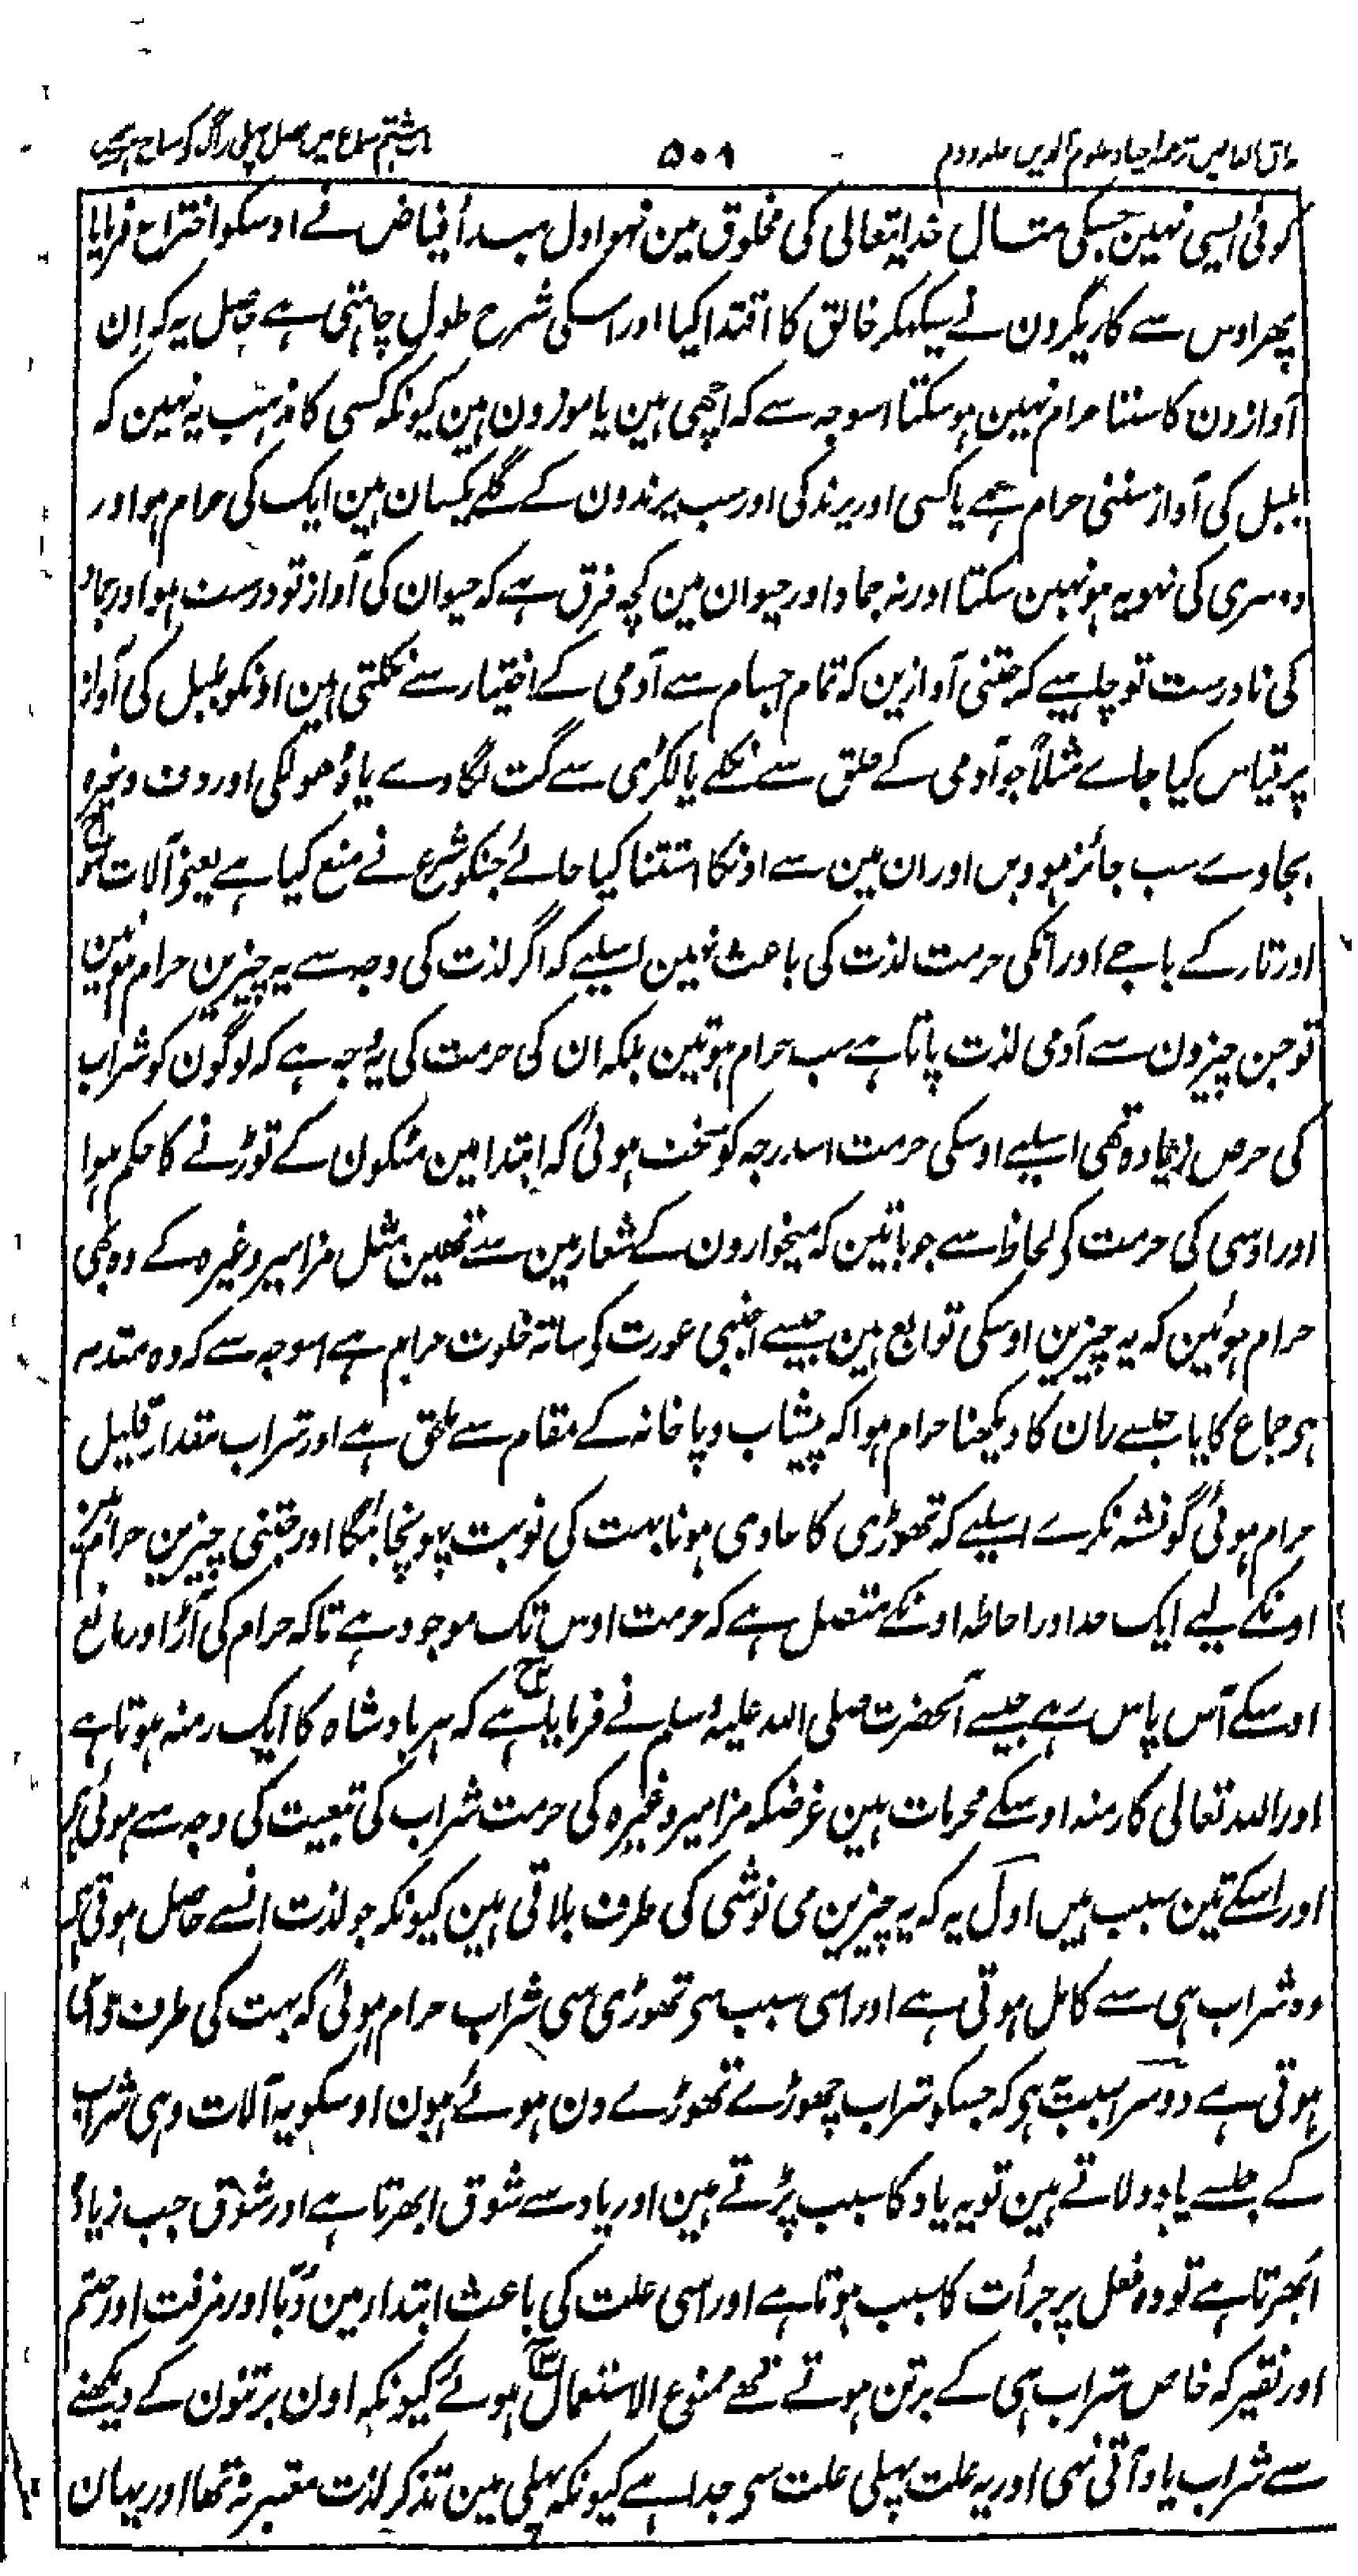 مذاق العارفین ترجمہ احیاء علوم الدین جلد دوم
۵۰۱
کوئی ایسی نہین جسکی مثال خدایتعالی کی مخلوق مین نہو اول مبدأ فیاض نے اوسکو اختراع فرمایا
پھر اوس سے کاریگرون نے سیکھکر خالق کا اقتدا کیا اور اسکی شرح طول چاہتی ہے حاصل یہ کہ ان
آوازون کا سننا حرام نہین ہو سکتا اسوجہ سے کہ اچھی ہین یا موزون ہین کیونکہ کسی کا مذہب یہ نہین کہ
بلبل کی آواز سننی حرام ہے یا کسی اور پرند کی اور سب پرندون کے گلے یکسان ہین ایک کی حرام ہو اور
دوسری کی نہو یہ ہو نہین سکتا اور نہ جماد اور حیوان مین کچھ فرق ہے کہ حیوان کی آواز تو درست ہو اور جماد
کی نادرست تو چاہیے کہ جتنی آوازین کہ تمام اجسام سے آدمی کے اختیار سے نکلتی ہین اونکو بلبل کی آواز
پر قیاس کیا جاے مثلاً جو آدمی کے حلق سے نکلے یا لکڑی سے گت لگاوے یا ڈھولکی اور دف وغیرہ
بجاوے سب جائز ہوویں اور ان مین سے اونکا استثنا کیا جائے جنکو شرع نے منع کیا ہے یعنی آلات لہو
اور تار کے باجے اور انکی حرمت لذت کی باعث نہین اسلیے کہ اگر لذت کی وجہ سے یہ چیزین حرام ہوتین
تو جن چیزون سے آدمی لذت پاتا ہے سب حرام ہوتین بلکہ ان کی حرمت کی یہ وجہ ہے کہ لوگون کو شراب
کی حرص زیادہ تھی اسلیے اوسکی حرمت اسدرجہ کو سخت ہوئی کہ ابتدا مین مٹکون کے توڑنے کا حکم ہوا
اور اوسی کی حرمت کی لحاظ سے جو باتین کہ میخوارون کے شعار مین سے تھین مثل مزامیر وغیرہ کے وہ بھی
حرام ہوئین کہ یہ چیزین اوسکی توابع ہین جیسے اجنبی عورت کی ساتھ خلوت حرام ہے اسوجہ سے کہ وہ مقدمہ
ہی جماع کا یا جیسے ران کا دیکھنا حرام ہوا کہ پیشاب و پاخانہ کے مقام سے ملحق ہے اور شراب مقدار قلیل
حرام ہوئی گو نشہ نکرے اسلیے کہ تھوڑی کا عادی ہونا بہت کی نوبت پہونچائیگا اور جتنی چیزین حرام ہین
اونکے لیے ایک حد اور احاطہ اونکے متصل ہے کہ حرمت اوس تک موجود ہے تاکہ حرام کی آڑ اور مانع
اوسکے آس پاس رہے جیسے آنحضرت صلی اللہ علیہ وسلم نے فرمایا ہے کہ ہر بادشاہ کا ایک رمنہ ہوتا ہے
اور اللہ تعالی کا رمنہ اوسکے محرمات ہین غرضکہ مزامیر وغیرہ کی حرمت شراب کی تبعیت کی وجہ سے ہوئی ہی
اور اسکے تین سبب ہیں اول یہ کہ یہ چیزین می نوشی کی طرف بلاتی ہین کیونکہ جو لذت انسے حاصل ہوتی ہی
وہ شراب ہی سے کامل ہوتی ہے اور اسی سبب سی تھوڑی سی شراب حرام ہوئی کہ بہت کی طرف داعی
ہوتی ہے دوسرا سبب یہ ہی کہ جسکو شراب چھوڑے تھوڑے دن ہوئے ہون اوسکو یہ آلات وہی شراب
کے جلسے یاد دلاتے ہین تو یہ یاد کا سبب پڑتے ہین اور یاد سے شوق ابھرتا ہے اور شوق جب زیادہ
ابھرتا ہے تو وہ فعل پر جرأت کا سبب ہوتا ہے اور اسی علت کی باعث ابتدا مین دبا اور مزفت اور حنتم
اور نقیر کہ خاص شراب ہی کے برتن ہوتے تھے ممنوع الاستعمال ہوئے کیونکہ اون برتنون کے دیکھنے
سے شراب یاد آتی تھی اور یہ علت پہلی علت سی جدا ہے کیونکہ پہلی مین تذکر لذت معتبر نہ تھا اور یہان